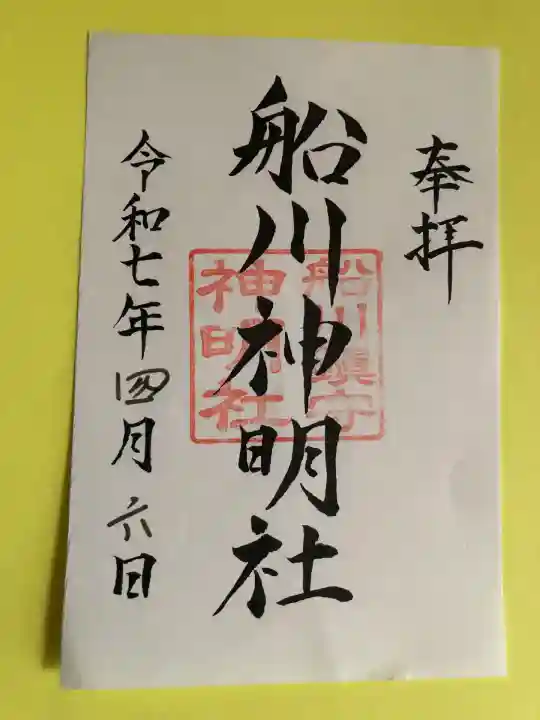 奉拝
船川神明社
船川鎮守
神明社
令和七年四月六日